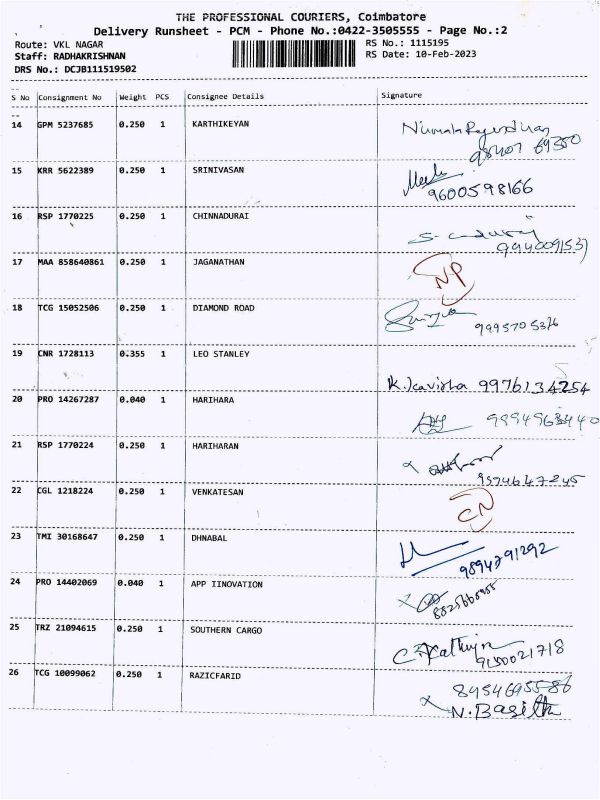 THE PROFESSIONAL COURIERS, Coimbatore
Delivery Runsheet - PCM - Phone No.:0422-3505555 - Page No.:2
Route: VKL NAGAR RS No.: 1115195
Staff: RADHAKRISHNAN RS Date: 10-Feb-2023
DRS No.: DCJB111519502
S No Consignment No Weight PCS Consignee Details Signature
14 GPM 5237685 0.250 1 KARTHIKEYAN
15 KRR 5622389 0.250 1 SRINIVASAN
9600598166
16 RSP 1770225 0.250 1 CHINNADURAI
9940091537
17 MAA 858640861 0.250 1 JAGANATHAN
NP
18 TCG 15052506 0.250 1 DIAMOND ROAD
19 CNR 1728113 0.355 1 LEO STANLEY
K. Kavitha 9976134254
20 PRO 14267287 0.040 1 HARIHARA
9994963440
21 RSP 1770224 0.250 1 HARIHARAN
22 CGL 1218224 0.250 1 VENKATESAN
CN
23 TMI 30168647 0.250 1 DHNABAL
24 PRO 14402069 0.040 1 APP IINOVATION
25 TRZ 21094615 0.250 1 SOUTHERN CARGO
9150021718
26 TCG 10099062 0.250 1 RAZICFARID
N. Basith